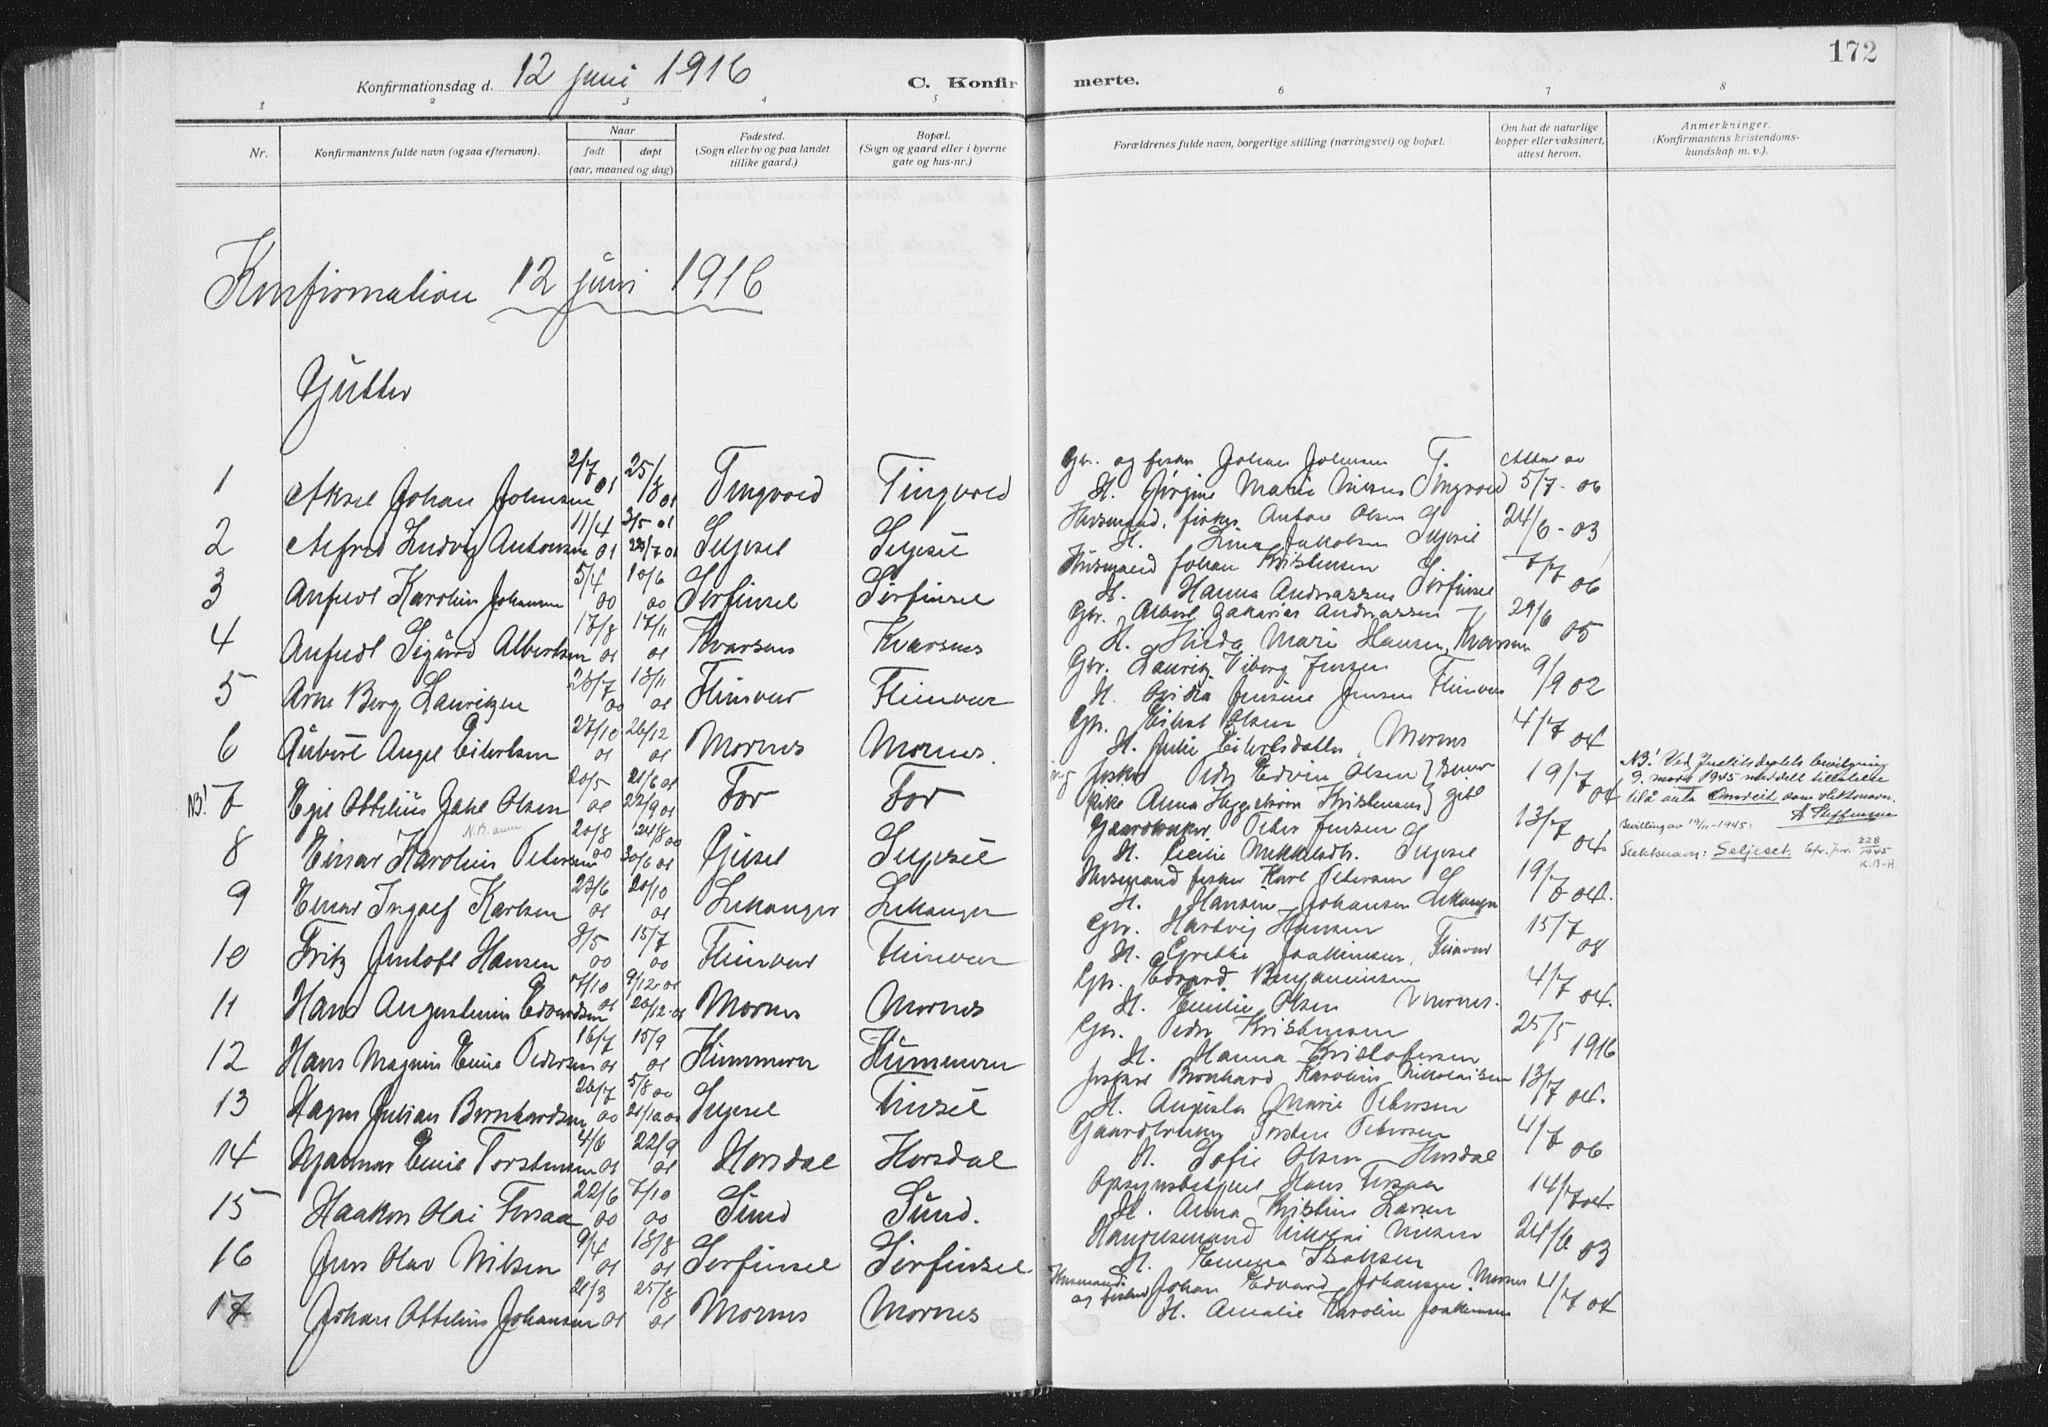 172
Konfirmationsdag d. 12 juni 1916 C. Konfirmerte.
1 2 3 4 5 6 7 8
Nr. Konfirmantens fulde navn (ogsaa efternavn). Naar født døpt (aar, maaned og dag) Fødested. (Sogn eller by og paa landet tillike gaard.) Bopæl. (Sogn og gaard eller i byerne gate og hus-nr.) Forældrenes fulde navn, borgerlige stilling (næringsvei) og bopæl. Om hat de naturlige kopper eller vaksinert, attest herom. Anmerkninger. (Konfirmantens kristendoms-kundskap m. v.).
Konfirmation 12 juni 1916
Gutter
1 Aksel Johan Johnsen 2/7 01 25/8 01 Tingvold Tingvold Gbr. og fisker Johan Johnsen T. Attest av
H. Jørgine Marie Nilsen Tingvold 5/7-06
2 Alfred Ludvig Antonsen 11/4 01 3/5 01 Seljesel Seljeset Husmand, fisker Anton Olsen 24/6-03
H. Lina Jakobsen Seljeset
3 Anfred Karolius Johansen 5/4 00 10/6 00 Sørfinset Sørfinset Husmand Johan Kristensen 7/7 06
H. Hanna Andreassen Sørfinset
4 Anfred Sigurd Albertsen 17/8 01 17/11 01 Kvarsnes Kvarsnes Gbr. Albert Zakarias Andreassen 29/6 05
H. Hilda Marie Hansen, Kvarsnes
5 Arne Berg Lauritzen 23/7 00 01 Flinvær Flinvær Gbr. Lauritz Viborg Jensen 9/9 02
H. Jensine Jensen Flinvær
6 Aubert Angel Eilertsen 27/10 01 26/12 01 Mornes Mornes. Gbr. Eilert Olsen 4/7 04
H. Julie Eilertsdatter, Mornes
NB! 7 Egil Ottelius Zahl Olsen 20/5 01 21/6 01 22/9 01 For For Peder Edvin Olsen 19/7 04
pike Anna Kristensen
NB! Ved Justitsdeptets bevilgning
9. mars 1945 meddelt tillatelse
til å anta Omreit som slektsnavn.
8 Einar Karolius Petersen 20/8 00 24/8 00 30/6 01 Gjesel Seljeset Gaardbruker Peter Jensen 13/7 04
H. Cecilie Mikkelsdtr. Seljesel
Bevilling av 19/11-1945:
Slektsnavn: Seljeset. 228/1945 K.B-H.
9 Einar Ingolf Karlsen 23/6 01 20/10 01 Lekanger Lekanger Husmand fisker Karl Petersen 19/7 04.
H. Hansine Johansen Lekanger
10 Fritz Jentoft Hansen 8/5 00 15/7 00 Flinvær Flinvær Gbr. Hartvig Hansen 15/7 08
H. Grethe Joakimsen, Flinvær
11 Hans Augustinius Edvardsen 7/10 01 9/12-01 20/12-01 Mornes Mornes Gbr. Edvard Benjaminsen 4/7 04.
H. Emilie Olsen Mornes.
12 Hans Magnus Emil Pedersen 16/7 01 15/9 01 Hummeren Hummeren Gbr. Peder Kristensen 25/5 1916
H. Hanna Kristofersen
13 Hagen Julian Bernhardsen 26/7 00 5/8 00 21/10 00 Seljesel Finset fisker Bernhard Karolius Nikolaisen 13/7 04.
H. Augusta Marie Petersen
14 Hjalmar Emil Torstensen 4/6 01 22/9 01 Horsdal Horsdal Gaardbruker Torsten Petersen 4/7 06
H. Sofie Olsen Horsdal
15 Haakon Olai Forsaa 22/6 00 7/10 00 Sund Sund. Opsynsbetjent Hans Forsaa 14/7 04.
H. Anna Kristine Larsen
16 Jens Olav Nilsen 9/4 01 18/8 01 Sørfinset Sørfinset Handelsmand Nikolai Nilsen 24/6 03
H. Emma Isaksen
17 Johan Ottelius Johansen 21/3 01 25/8 01 Mornes Mornes Husmand og fisker Johan Edvard Johansen Mornes 4/7 04
H. Amalie Karoline Joakimsen